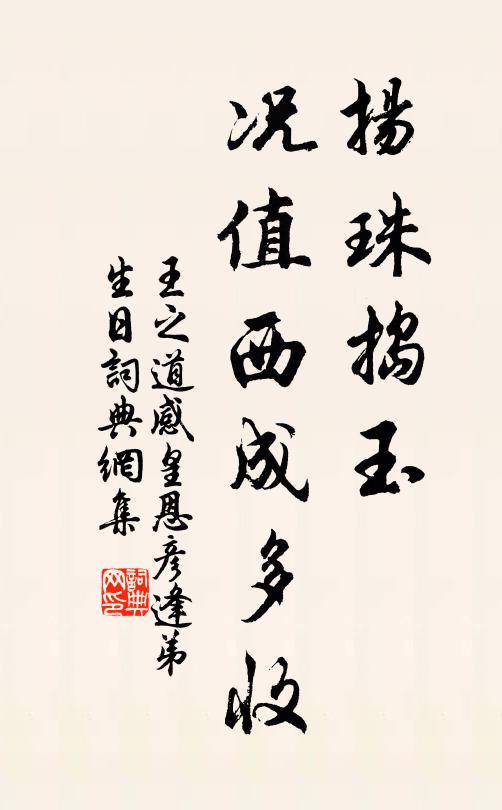 揚珠搗玉
況值西成多收
王之道感皇恩彦逢弟
生日詞典網集
詞典
网印